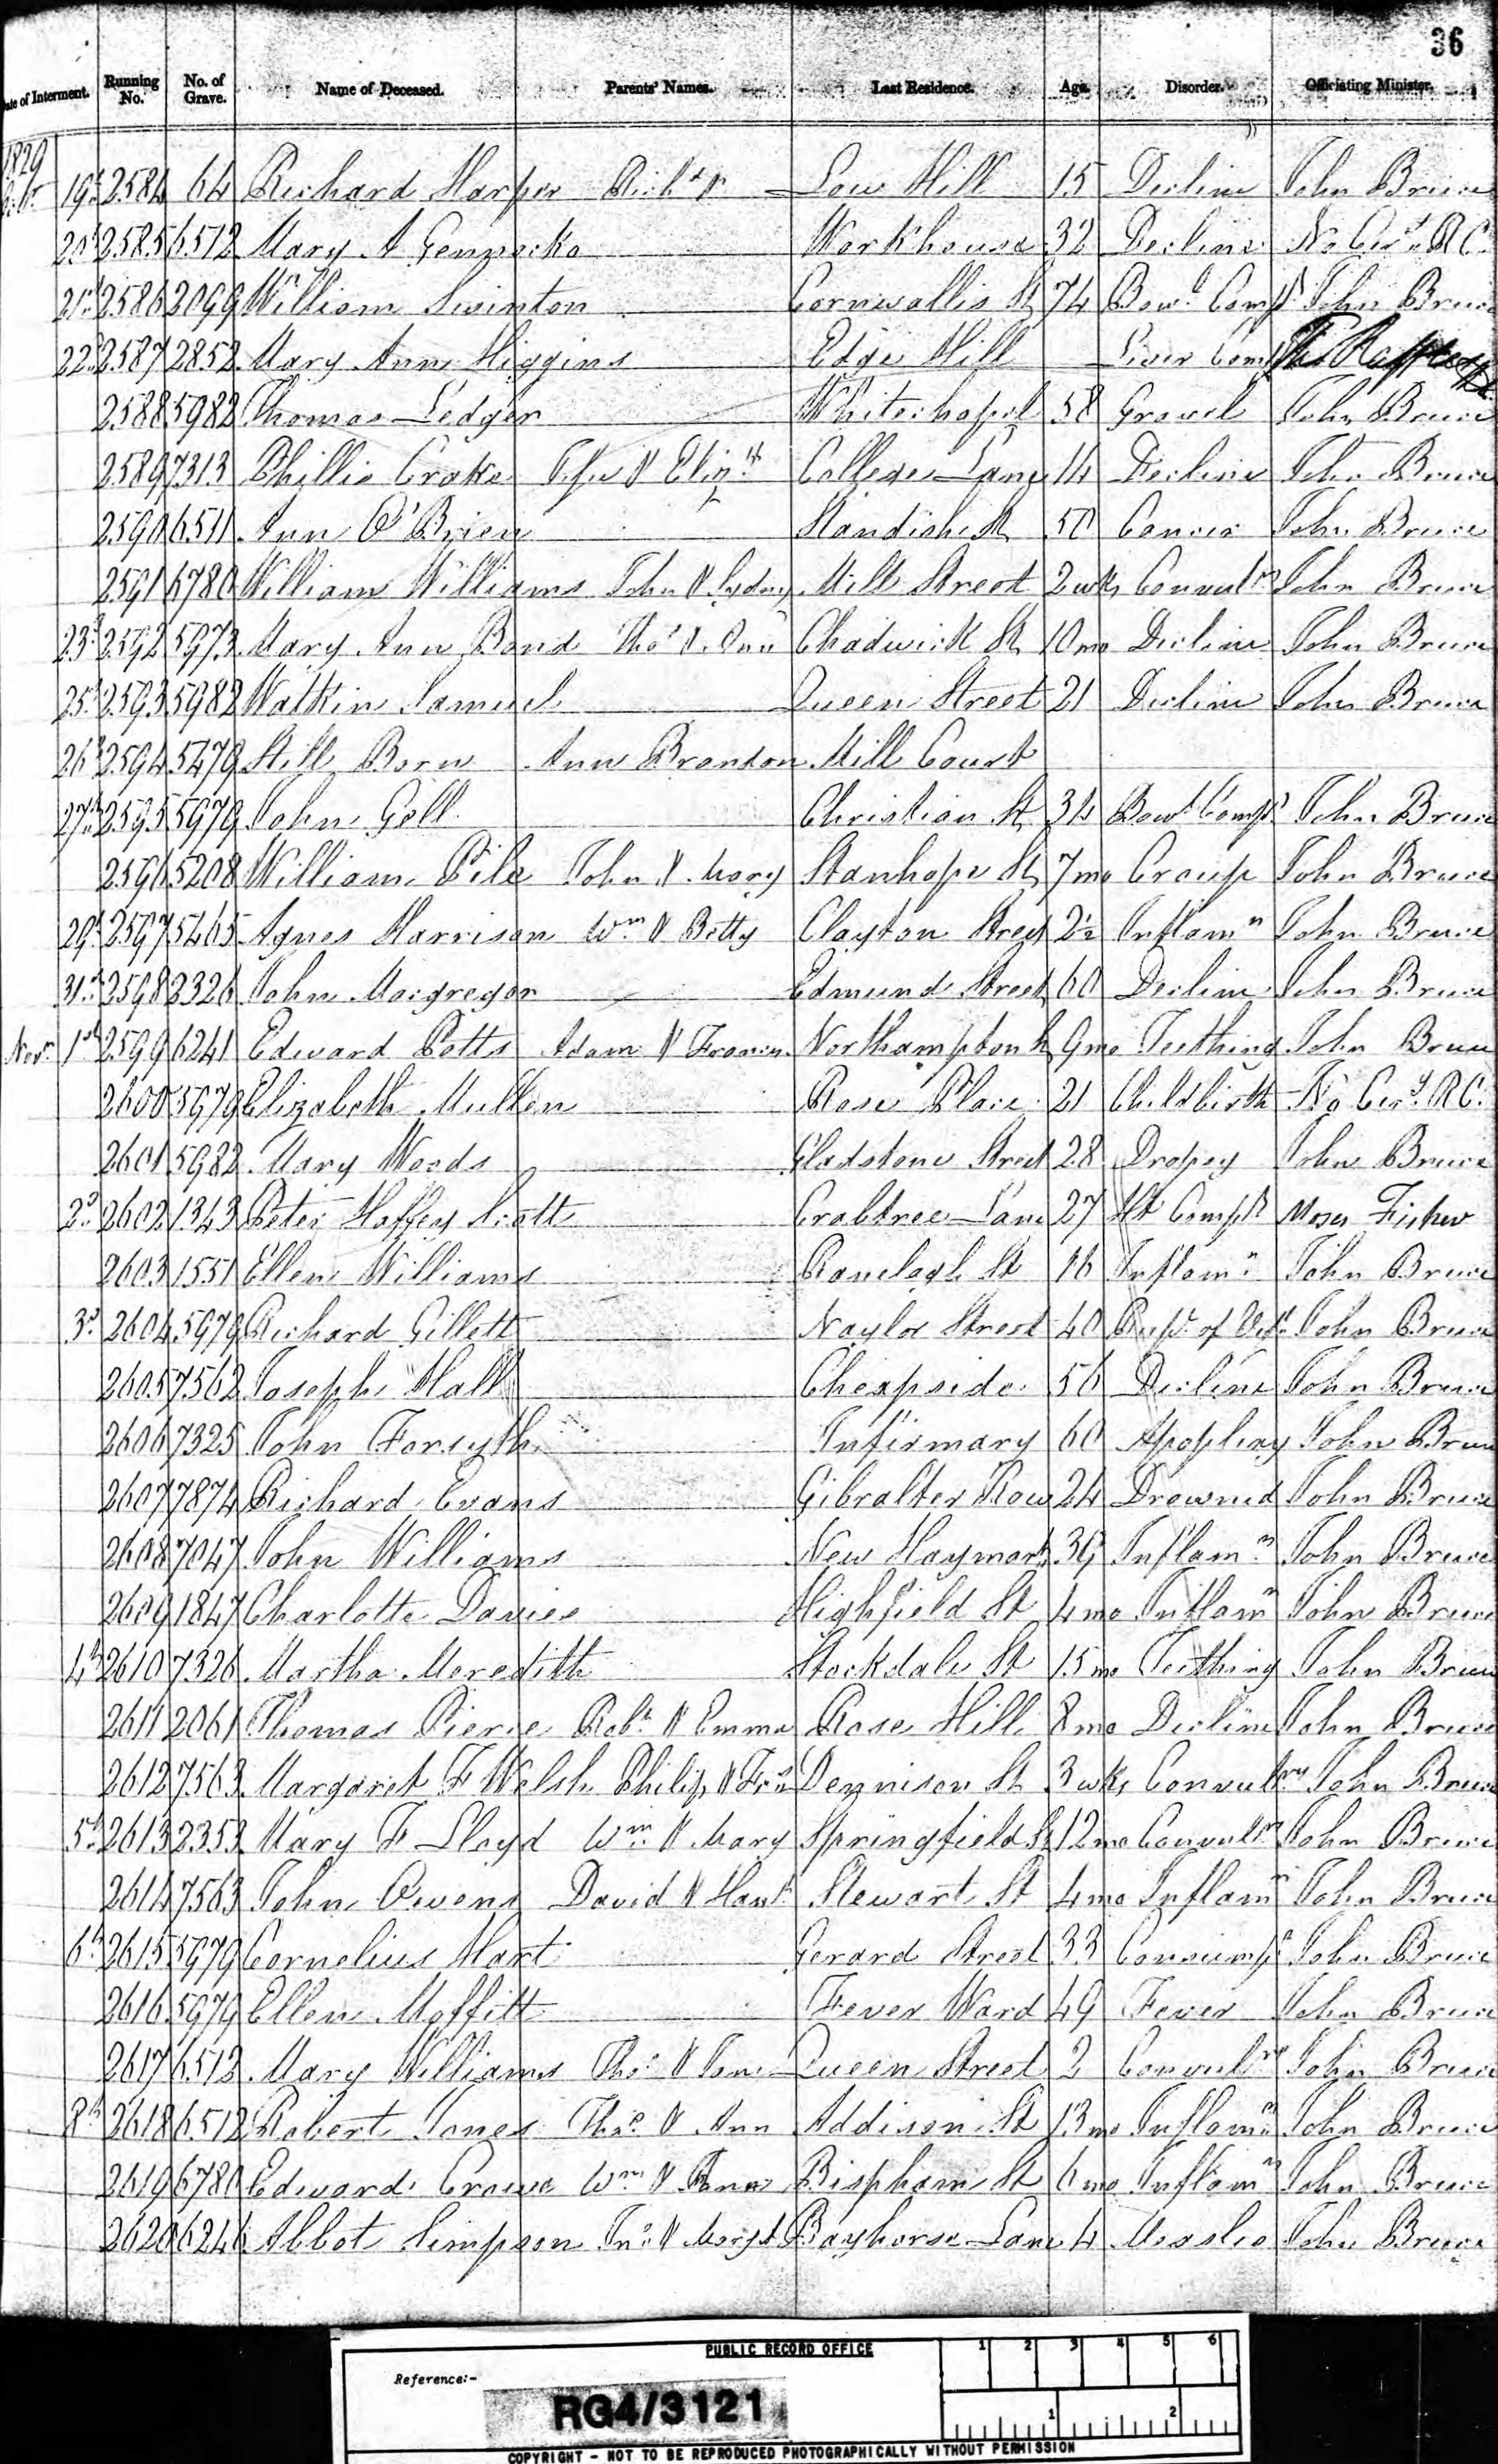 36
Date of Interment. Running No. No. of Grave. Name of Deceased. Parents' Names. Last Residence. Age. Disorder. Officiating Minister.
1829
19th 2584 64 Richard Harper Richd & Low Hill 15 Decline John Bruce
20th 2585 6512 Mary A Workhouse 32 Decline No Cert. R C.
21st 2586 2099 William Swinton Cornwallis St 74 Bowl Compt John Bruce
22nd 2587 2852 Mary Ann Higgins Edge Hill Liver Comp Thos Raffles
2588 5982 Thomas Ledger Whitechapel 58 Gravel John Bruce
2589 7313 Phillis Crake & Elizth College Lane 14 Decline John Bruce
2590 6511 Ann O'Brien Standish St 50 Cancer John Bruce
2591 6780 William Williams John & Sydney Mill Street 2 wks Convulns John Bruce
23rd 2592 5973 Mary Ann Bond Thos & Ann Chadwick St 10 mo Decline John Bruce
25th 2593 5982 Watkin Samuel Queen Street 21 Decline John Bruce
26th 2594 5479 Still Born Ann Branson Mill Court
27th 2595 5979 John Gell Christian St 34 Bowl Compt John Bruce
2596 5208 William Pile John & Mary Stanhope St 7 mo Croup John Bruce
29th 2597 5465 Agnes Harrison Wm & Betty Clayton Street 2½ Inflamn John Bruce
31st 2598 2326 John Macgregor Edmund Street 60 Decline John Bruce
Novr 1st 2599 6241 Edward Potts Adam & Frances Northampton St 9 mo Teething John Bruce
2600 5979 Elizabeth Mullen Rose Place 21 Childbirth No Cert. R C.
2601 5982 Mary Woods Gladstone Street 28 Dropsy John Bruce
2d 2602 1343 Peter Haffey Scott Crabtree Lane 27 Ht Complt Moses Fisher
2603 1551 Ellen Williams Ranelagh St 16 Inflamn John Bruce
3d 2604 5979 Richard Gillett Naylor Street 40 Rupt. of Vesl John Bruce
2605 7562 Joseph Hall Cheapside 56 Decline John Bruce
2606 7325 John Forsyth Infirmary 60 Apoplexy John Bruce
2607 7874 Richard Evans Gibralter Row 24 Drowned John Bruce
2608 7047 John Williams New Haymart 39 Inflamn John Bruce
2609 1847 Charlotte Davies Highfield St 4 mo Inflamn John Bruce
4th 2610 7326 Martha Meredith Stockdale St 15 mo Teething John Bruce
2611 2061 Thomas Pierce Robt & Emma Rose Hill 8 mo Decline John Bruce
2612 7563 Margaret F Welsh Philip & Frs Dennison St 3 wks Convulns John Bruce
5th 2613 2353 Mary F Lloyd Wm & Mary Springfield St 12 mo Convulns John Bruce
2614 7563 John Owens David & Hanh Stewart St 4 mo Inflamn John Bruce
6th 2615 5979 Cornelius Hart Gerard Street 33 Consumpn John Bruce
2616 5979 Ellen Moffitt Fever Ward 49 Fever John Bruce
2617 6513 Mary Williams Thos & Jane Queen Street 2 Convulns John Bruce
8th 2618 6512 Robert Jones Thos & Ann Addison St 13 mo Inflamn John Bruce
2619 6780 Edward Crowe Wm & Bispham St 6 mo Inflamn John Bruce
2620 6246 Abbot Simpson Jno & Margt Bayhorse Lane 4 Measles John Bruce
PUBLIC RECORD OFFICE
1 2 3 4 5 6
Reference:-
RG4/3121
1 2
COPYRIGHT - NOT TO BE REPRODUCED PHOTOGRAPHICALLY WITHOUT PERMISSION